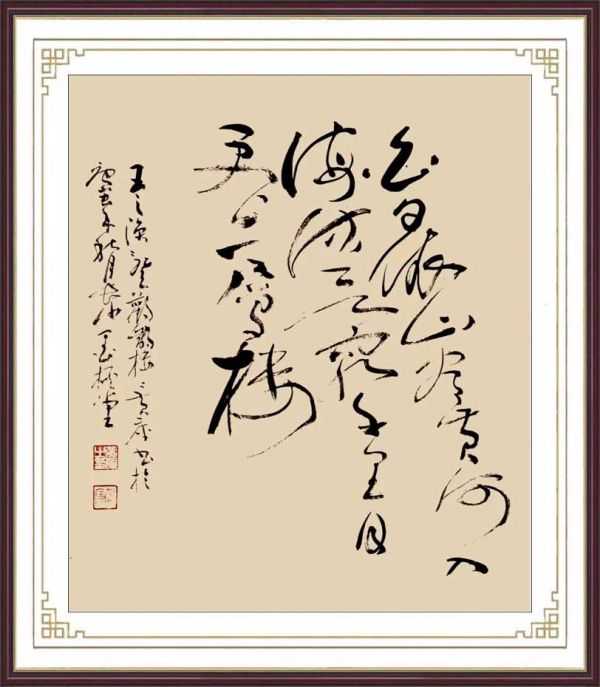 白日依山尽黄河入
海流欲穷千里目
更上一层楼
王之涣登鹳雀楼 书於
庚寅年秋月